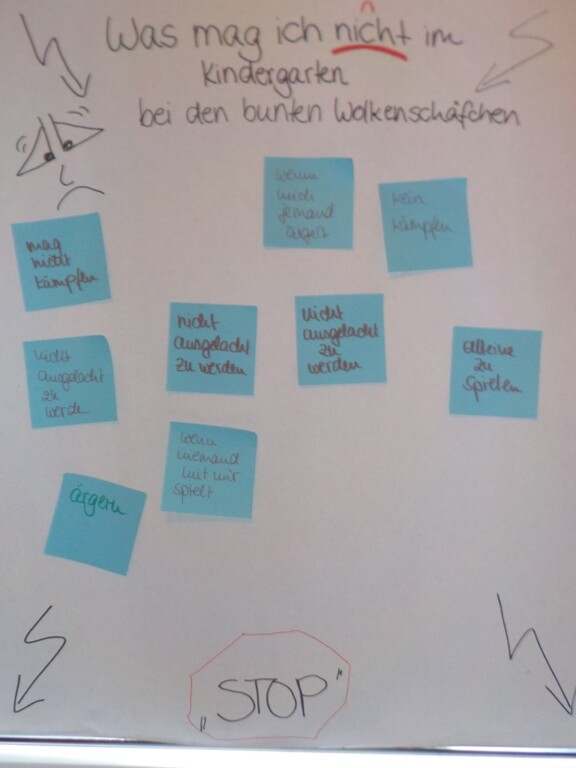 Was mag ich nicht im
Kindergarten
bei den bunten Wolkenschäfchen
wenn
mich
jemand
ärgert
kein
kämpfen
mag
nicht
kämpfen
nicht
ausgelacht
zu werden
nicht
ausgelacht
zu
werden
alleine
zu
spielen
nicht
ausgelacht
zu
werde
wenn
niemand
mit mir
spielt
ärgern
„STOP"